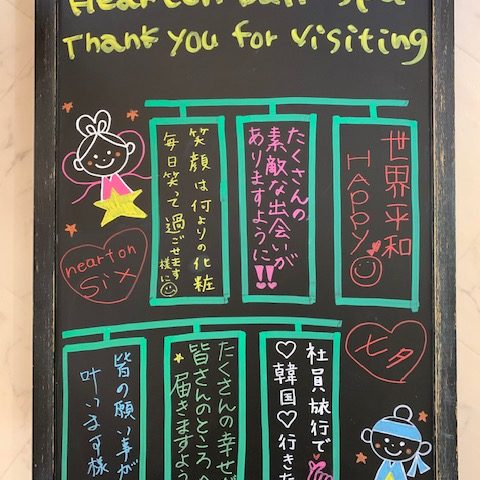 Hearton
Thank you for visiting
世界平和
HAPPY
たくさんの
素敵な出会いが
ありますように!!
笑顔は何よりの化粧
毎日笑って過ごせます
様に
hearton
six
七夕
社員旅行で
♡韓国♡行きた
たくさんの幸せが
皆さんのところへ
届きますよう
皆の願い事が
叶います様